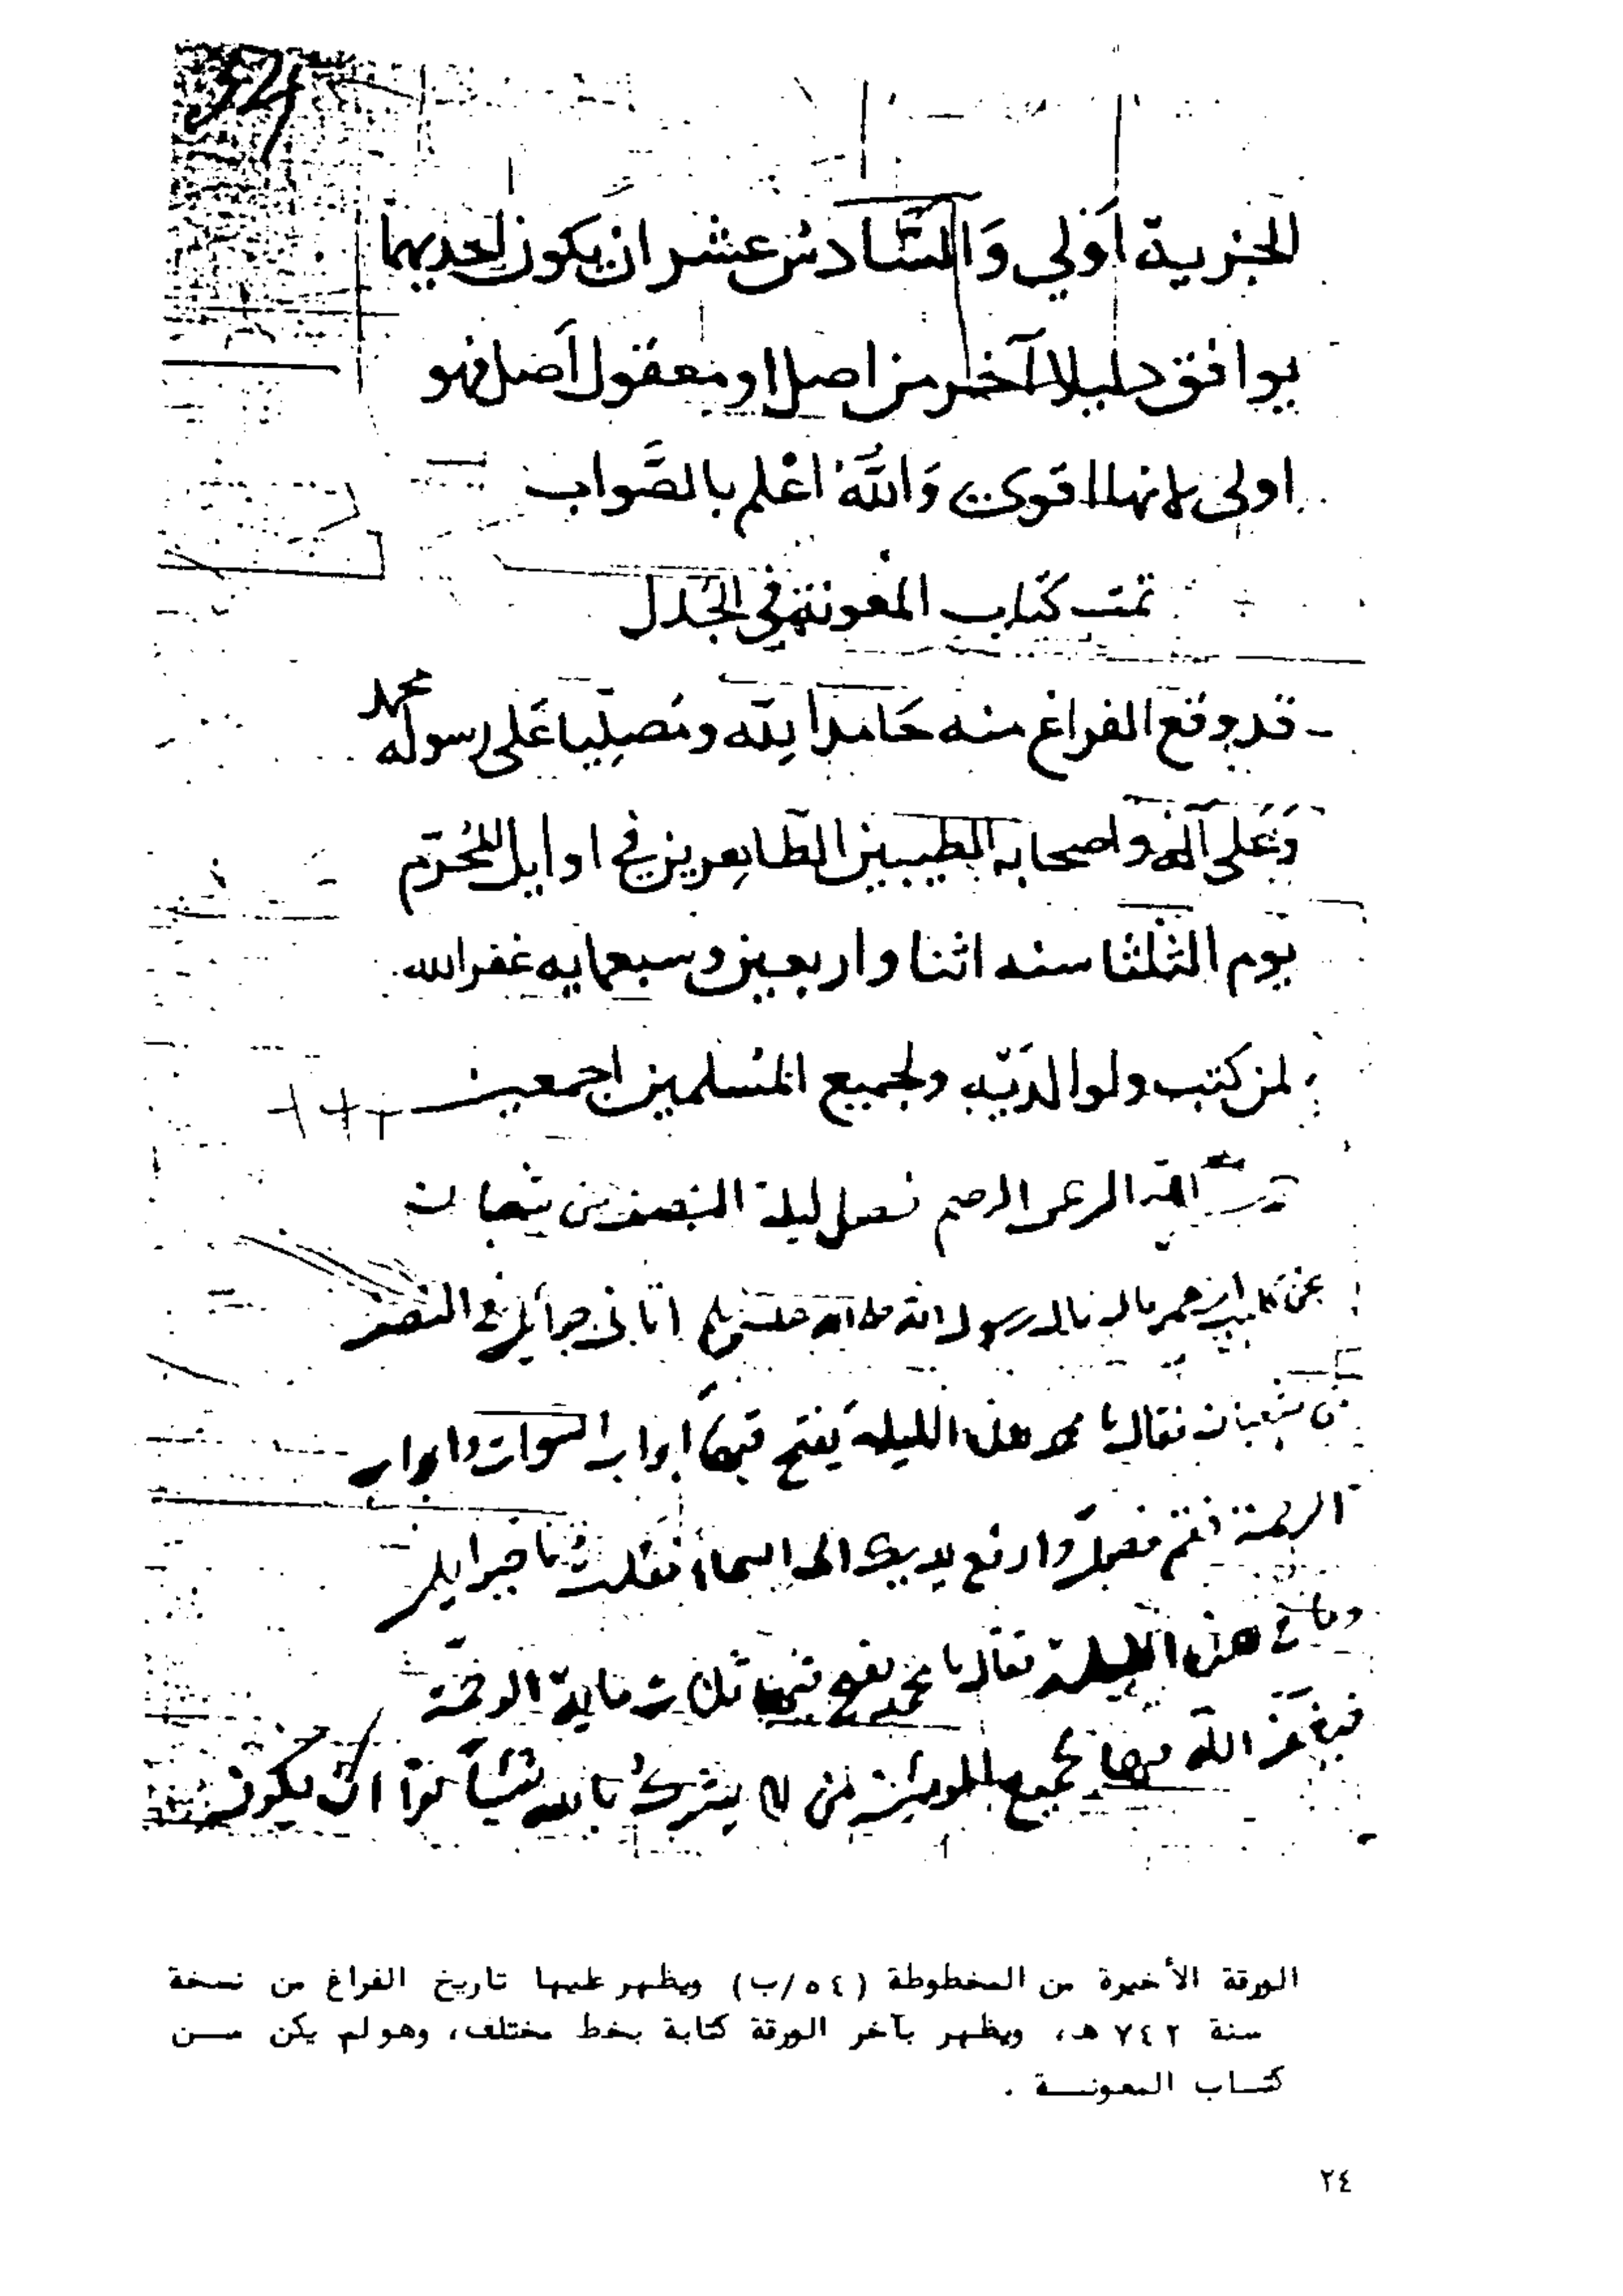 54
الجزية اولي والسادس عشر ان يكون احديهما
يوافق دليلا آخر من اصل او معقول اصل فهو
اولى لانها اقوى والله اعلم بالصواب
تمت كتاب المعونة في الجدل
قد وقع الفراغ منه حامدا لله ومصليا على رسوله محمد
وعلى آله واصحابه الطيبين الطاهرين في اوايل المحرم
يوم الثلثا سنه اثنا واربعين وسبعمايه غفر الله
لمن كتب ولوالديه ولجميع المسلمين اجمعين
الله الرحمن الرحيم فصل ليلة النصف من شعبان
عن قال قال رسول الله صلى الله عليه وسلم اتانى جبرائيل في النصف
من شعبان فقال يا محمد هذه الليله يفتح فيها ابواب السموات وابواب
الرحمة فقم فصل وارفع يديك الى السماء فقلت يا جبرايل
وما هذه الليلة فقال يا محمد يفتح فيها ثلاث ماية الرحمة
فيغفر الله فيها لجميع من لا يشرك بالله شيأ الا ان يكون
الورقة الأخيرة من المخطوطة (٥٤/ب) ويظهر عليها تاريخ الفراغ من نسخة
سنة ٧٤٢ هـ، ويظهر بآخر الورقة كتابة بخط مختلف، وهو لم يكن مــن
كتــاب المعونــة .
٢٤